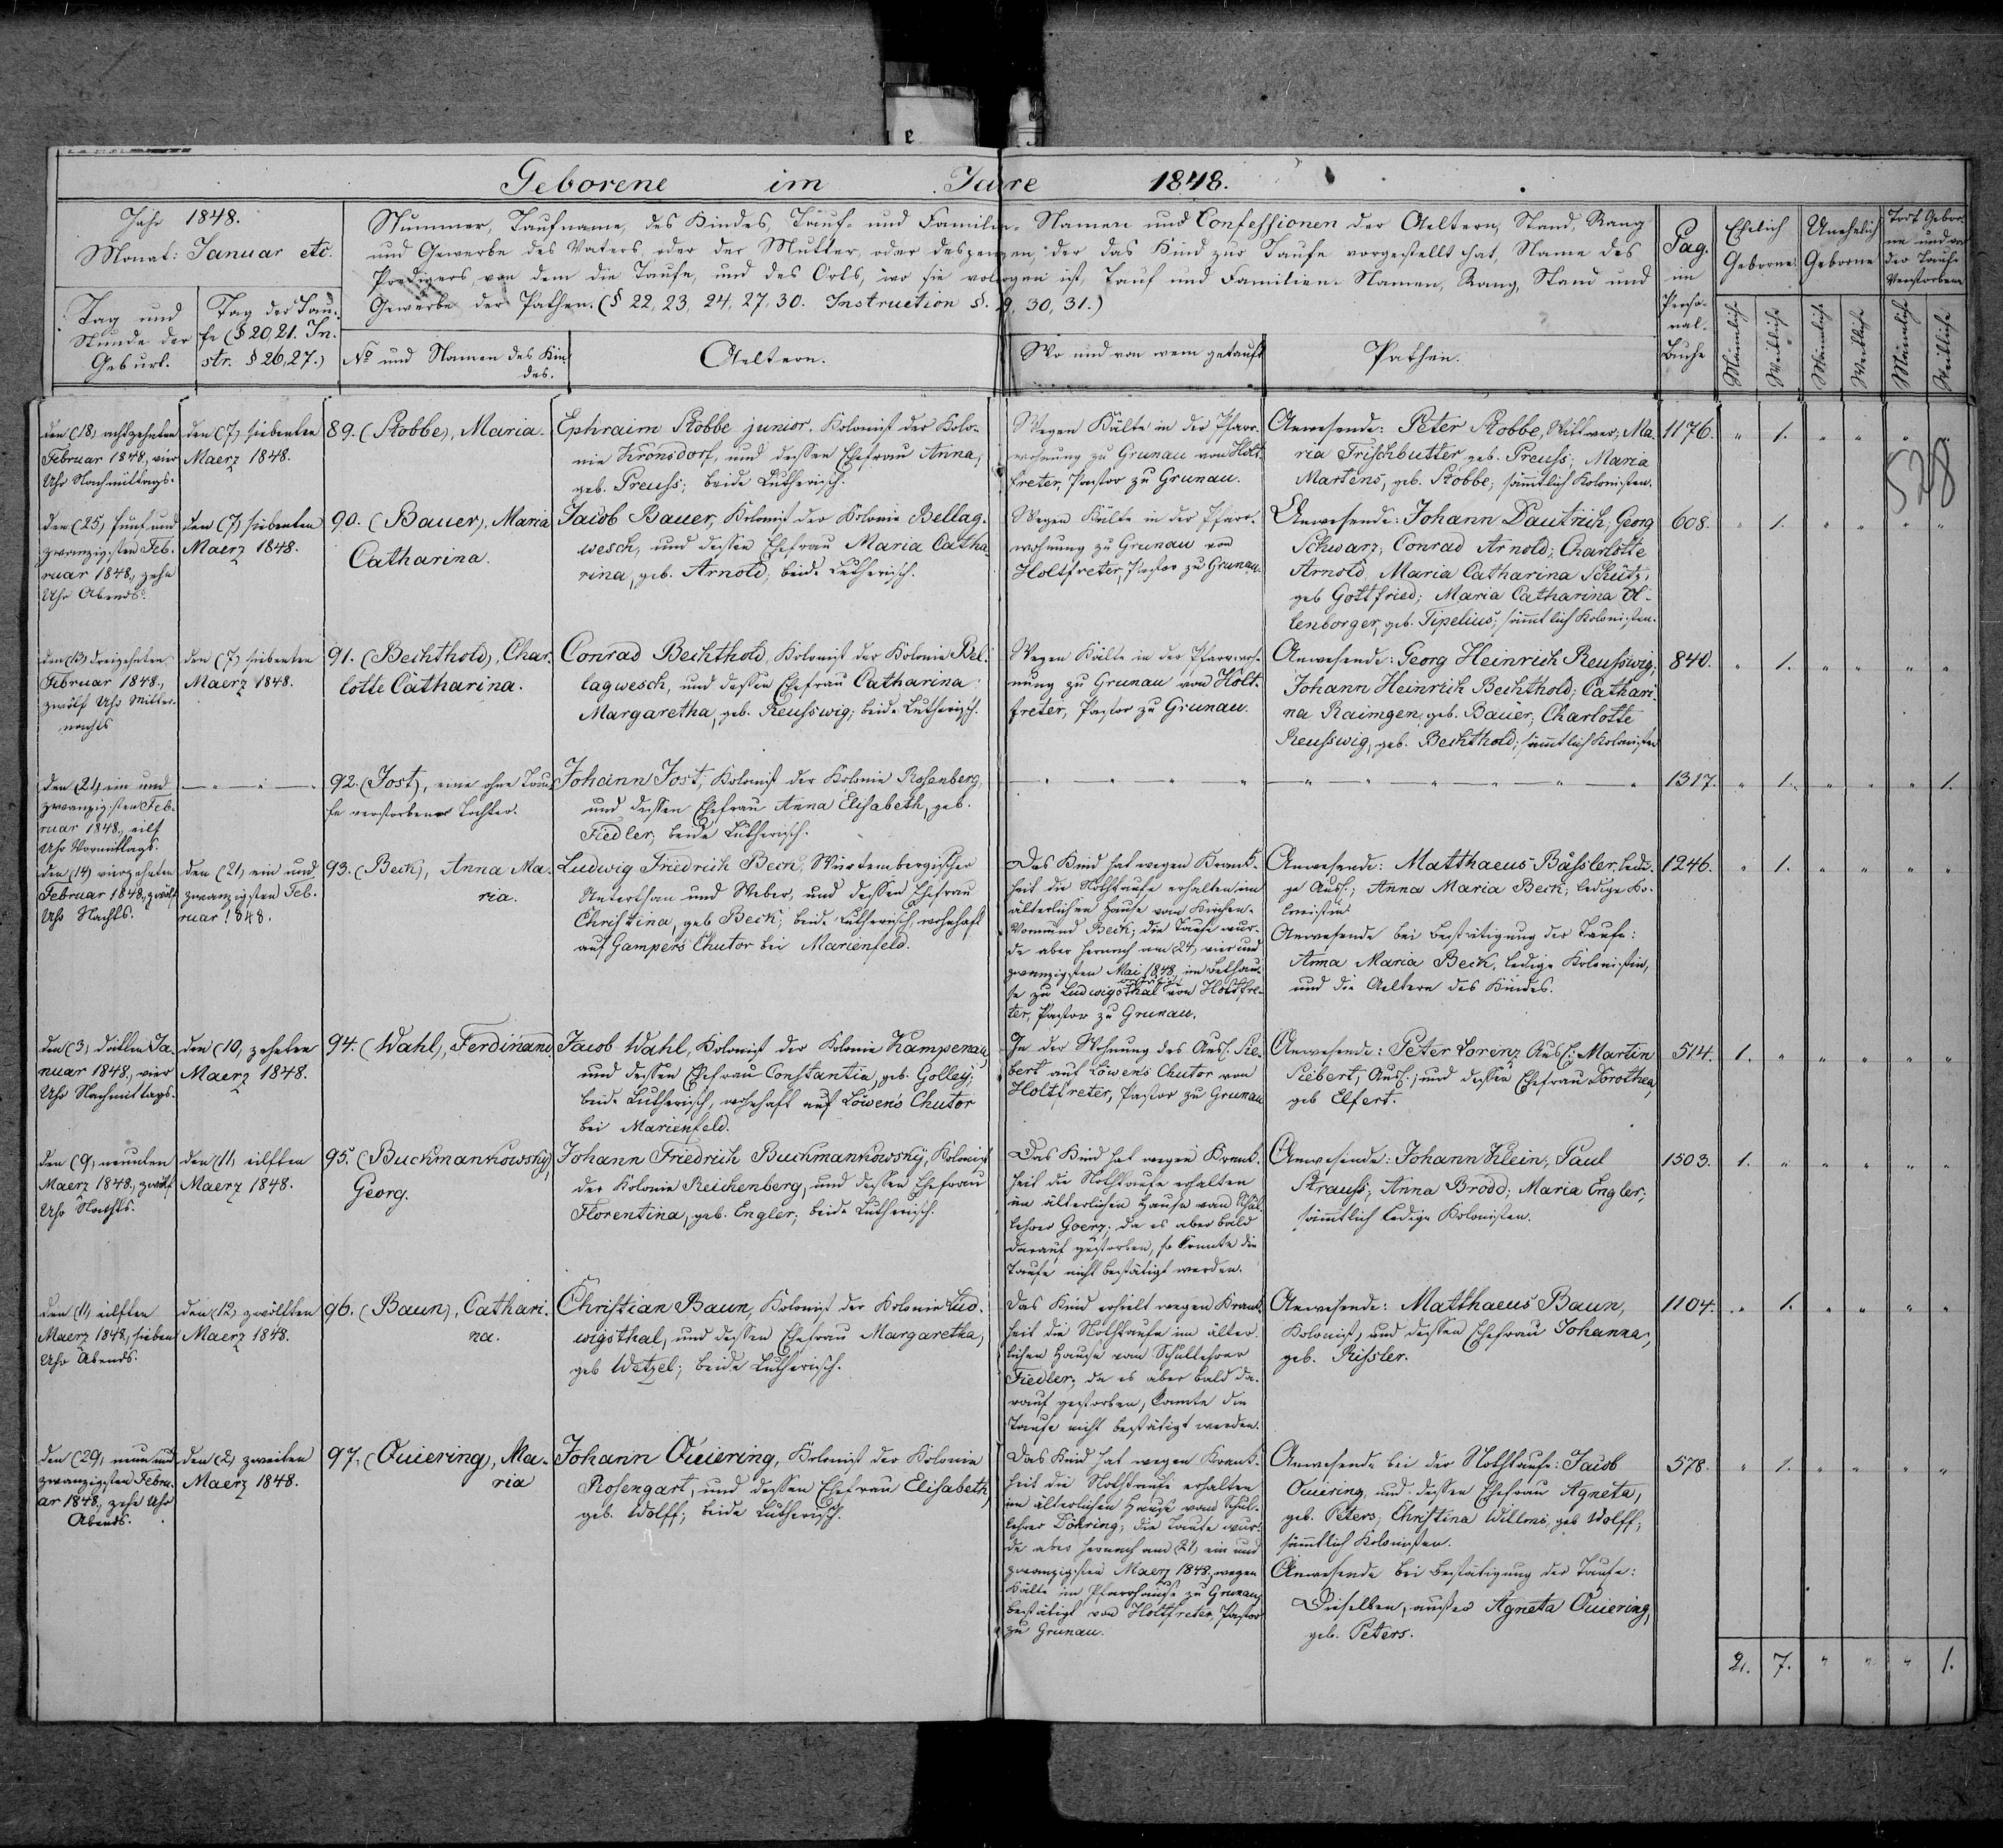 Geborene im Jahre 1848.
Jahr 1848.
Monat: Januar etc.
Nummer, Taufname, des Kindes, Tauf- und Familien-Namen und Confessionen der Aeltern, Stand, Rang
und Gewerbe des Vaters, oder der Mutter, oder desjenigen, der das Kind zur Taufe vorgestellt hat, Name des
Predigers, von dem die Taufe, und des Orts, wo sie vollzogen ist, Tauf und Familien-Namen, Rang, Stand und
Gewerbe der Pathen. (§ 22, 23, 24, 27, 30. Instruction §. 9, 30, 31.)
Tag und
Stunde der
Geburt.
Tag der Tau-
fe (§ 20, 21. In-
str. § 26, 27.)
No und Namen des Kin-
des.
Aeltern.
Wo und von wem getauft
Pathen.
Pag.
im
Perso-
nal-
Buche
Ehelich
Geborne
Unehelich
Geborne
Todt Gebor-
ne und vor
der Taufe
Verstorbene
Männliche
Weibliche
Männliche
Weibliche
Männliche
Weibliche
528
den (18) achtzehnten
Februar 1848, vier
Uhr Nachmittags.
den (7) siebenten
Maerz 1848.
89. (Stobbe), Maria.
Ephraim Stobbe junior, Kolonist der Kolo-
nie Kronsdorf, und dessen Ehefrau Anna,
geb. Preuss; beide Lutherisch.
Wegen Kälte in der Pfarr-
wohnung zu Grunau von Holt-
freter, Pastor zu Grunau.
Anwesende: Peter Stobbe, Wittwer; Ma-
ria Frischbutter, geb. Preuss; Maria
Martens, geb. Stobbe; sämmtlich Kolonisten.
1176. " 1. " " " "
den (25) fünf und
zwanzigsten Feb-
ruar 1848, zehn
Uhr Abends.
den (7) siebenten
Maerz 1848.
90. (Bauer), Maria
Catharina.
Jacob Bauer, Kolonist der Kolonie Bellag-
wesch, und dessen Ehefrau Maria Catha-
rina, geb. Arnold; beide Lutherisch.
Wegen Kälte in der Pfarr-
wohnung zu Grunau von
Holtfreter, Pastor zu Grunau.
Anwesende: Johann Dautrich; Georg
Schwarz; Conrad Arnold; Charlotte
Arnold, Maria Catharina Schütz,
geb Gottfried; Maria Catharina Ol-
lenborger, geb. Tipelius; sämmtlich Kolonisten.
608. " 1. " " " "
den (13) dreizehnten
Februar 1848,
zwölf Uhr Mitter-
nachts
den (7) siebenten
Maerz 1848.
91. (Bechthold), Char-
lotte Catharina.
Conrad Bechthold, Kolonist der Kolonie Bel-
lagwesch, und dessen Ehefrau Catharina
Margaretha, geb. Reusswig; beide Lutherisch.
Wegen Kälte in der Pfarrwoh-
nung zu Grunau von Holt-
freter, Pastor zu Grunau.
Anwesende: Georg Heinrich Reusswig;
Johann Heinrich Bechthold; Cathari-
na Raimgen, geb. Bauer; Charlotte
Reusswig, geb. Bechthold; sämmtlich Kolonisten
840. " 1. " " " "
den (21) ein und
zwanzigsten Feb-
ruar 1848, eilf
Uhr Vormittags.
92. (Jost), eine ohne Tau-
fe verstorbene Tochter.
Johann Jost, Kolonist der Kolonie Rosenberg,
und dessen Ehefrau Anna Elisabeth, geb.
Fiedler; beide Lutherisch.
1317. " 1. " " " 1.
den (14) vierzehnten
Februar 1848, zwölf
Uhr Nachts.
den (21) ein und
zwanzigsten Feb-
ruar 1848.
93. (Beck), Anna Ma-
ria.
Ludwig Friedrich Beck, Würtembergischer
Unterthan und Weber, und dessen Ehefrau
Christina, geb Beck; beide Lutherisch, wohnhaft
auf Gampers Chutor bei Marienfeld.
Das Kind hat wegen Krank-
heit die Nothtaufe erhalten im
älterlichen Hause vom Kirchen-
Vormund Beck; die Taufe wur-
de aber hernach am (24) vier und
zwanzigsten Mai 1848, im Bethau-
se zu Ludwigsthal von Holtfre-
ter, Pastor zu Grunau.
Anwesende: Matthaeus Bässler, ledi-
ge Ausl.; Anna Maria Beck, ledige Ko-
lonistin.
Anwesende bei Bestätigung der Taufe:
Anna Maria Beck, ledige Kolonistin,
und die Aeltern des Kindes.
1246. " 1. " " " "
den (3) dritten Ja-
nuar 1848, vier
Uhr Nachmittags.
den (10) zehnten
Maerz 1848.
94. (Wahl), Ferdinand.
Jacob Wahl, Kolonist der Kolonie Kampenau,
und dessen Ehefrau Constantia, geb. Golley;
beide Lutherisch, wohnhaft auf Löwen's Chutor
bei Marienfeld.
In der Wohnung des Ausl. Sie-
bert auf Löwen's Chutor von
Holtfreter, Pastor zu Grunau
Anwesende: Peter Lorenz Ausl.; Martin
Siebert, Ausl., und dessen Ehefrau Dorothea,
geb Elfert.
514. 1. " " " " "
den (9) neunten
Maerz 1848, zwölf
Uhr Nachts.
den (11) eilften
Maerz 1848.
95. (Buckmankowsky),
Georg.
Johann Friedrich Buckmankowsky, Kolonist
der Kolonie Reichenberg, und dessen Ehefrau
Florentina, geb. Engler; beide Lutherisch.
Das Kind hat wegen Krank-
heit die Nothtaufe erhalten
im älterlichen Hause vom Schul-
lehrer Goerz; da es aber bald
darauf gestorben, so konnte die
Taufe nicht bestätigt werden.
Anwesende: Johann Klein, Paul
Strauss; Anna Brodd; Maria Engler;
sämmtlich ledige Kolonisten.
1503. 1. " " " " "
den (11) eilften
Maerz 1848, sieben
Uhr Abends.
den (12) zwölften
Maerz 1848.
96. (Baun), Cathari-
na.
Christian Baun, Kolonist der Kolonie Lud-
wigsthal, und dessen Ehefrau Margaretha,
geb Wetzel; beide Lutherisch.
Das Kind erhielt wegen Krank-
heit die Nothtaufe im älter-
lichen Hause vom Schullehrer
Fiedler; da es aber bald da-
rauf gestorben, konnte die
Taufe nicht bestätigt werden.
Anwesende: Matthaeus Baun,
Kolonist, und dessen Ehefrau Johanna,
geb. Rissler.
1104. " 1. " " " "
den (29) neun und
zwanzigsten Febru-
ar 1848, zehn Uhr
Abends.
den (2) zweiten
Maerz 1848.
97. (Quiering), Ma-
ria
Johann Quiering, Kolonist der Kolonie
Rosengart, und dessen Ehefrau Elisabeth,
geb. Wolff; beide Lutherisch.
Das Kind hat wegen Krank-
heit die Nothtaufe erhalten
im älterlichen Hause vom Schul-
lehrer Döhring; die Taufe wur-
de aber hernach am (21) ein und
zwanzigsten Maerz 1848, wegen
Kälte im Pfarrhause zu Grunau,
bestätigt von Holtfreter, Pastor
zu Grunau.
Anwesende bei der Nothtaufe: Jacob
Quiering, und dessen Ehefrau Agneta,
geb. Peters; Christina Willms, geb Wolff;
sämmtlich Kolonisten.
Anwesende bei Bestätigung der Taufe:
Dieselben, ausser Agneta Quiering,
geb. Peters.
578. " 1. " " " "
2. 7. " " " 1.